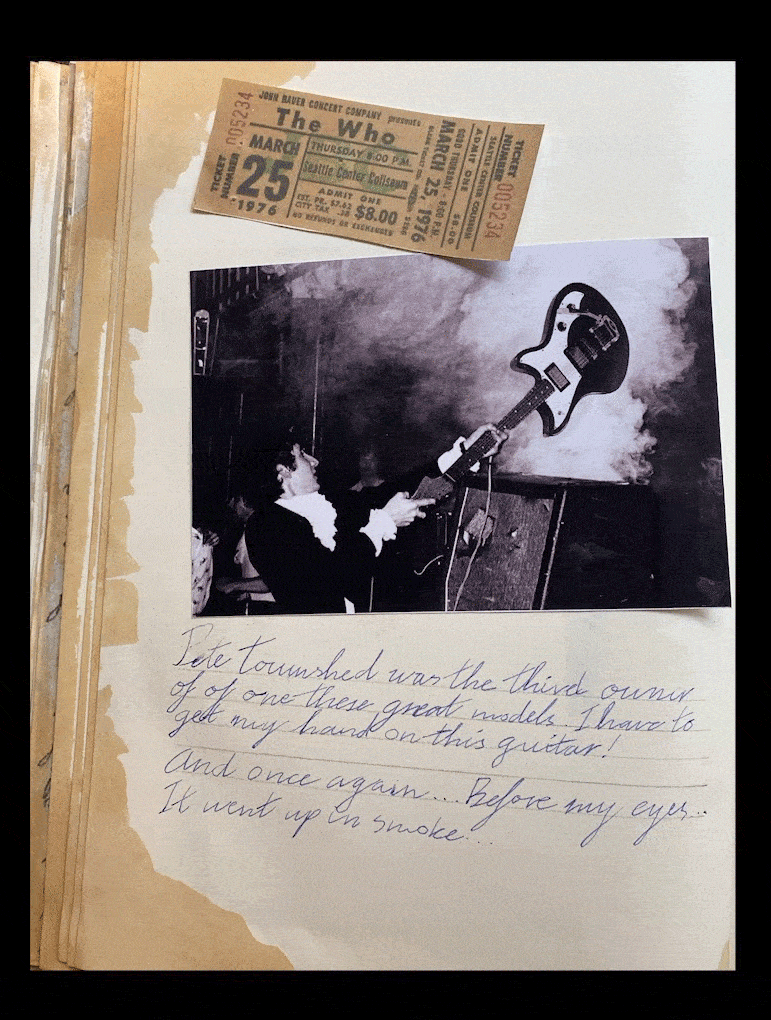 JOHN BAUER CONCERT COMPANY presents
The Who
TICKET NUMBER 005234
MARCH
25
1976
THURSDAY 8:00 P.M.
Seattle Center Coliseum
ADMIT ONE
EST. PR. $7.62
CITY TAX .38
$8.00
NO REFUNDS OR EXCHANGES
GOOD THURSDAY 8:00 P.M.
MARCH 25, 1976
ADMIT ONE $8.00
SEATTLE CENTER COLISEUM
TICKET NUMBER 005234
Pete townshed was the third owner
of of one these great models. I have to
get my hand on this guitar!
And once again... Before my eyes..
It went up in smoke...